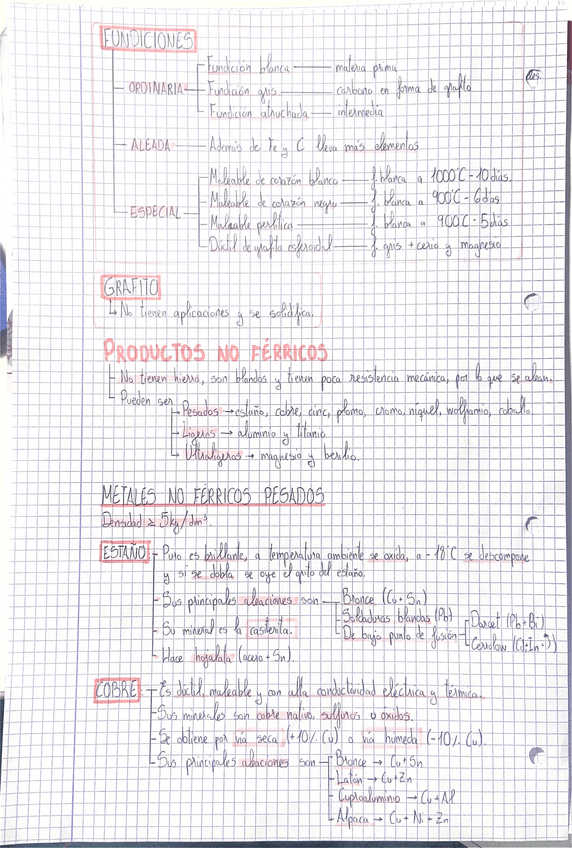 FUNDICIONES
ORDINARIA
Fundición blanca — materia prima
Fundición gris — carbono en forma de grafito
Fundición atruchada — intermedia
ALEADA — Además de Fe y C lleva más elementos
ESPECIAL
Maleable de corazón blanco — f. blanca a 1000°C - 10 días.
Maleable de corazón negro — f. blanca a 900°C - 6 días
Maleable perlítica — f. blanca a 900°C - 5 días
Dúctil de grafito esferoidal — f. gris + cerio y magnesio
GRAFITO
↳ No tienen aplicaciones y se solidifica.
PRODUCTOS NO FÉRRICOS
No tienen hierro, son blandos y tienen poca resistencia mecánica, por lo que se alean.
Pueden ser
Pesados → estaño, cobre, cinc, plomo, cromo, níquel, wolframio, cobalto.
Ligeros → aluminio y titanio
Ultraligeros → magnesio y berilio.
METALES NO FÉRRICOS PESADOS
Densidad ≥ 5kg/dm³.
ESTAÑO
Puro es brillante, a temperatura ambiente se oxida, a -18°C se descompone
y si se dobla se oye el grito del estaño.
Sus principales aleaciones son
Bronce (Cu + Sn)
Soldaduras blandas (Pb)
De bajo punto de fusión
Darcet (Pb + Bi)
Cerrolow
Su mineral es la casiterita.
Hace hojalata (acero + Sn).
COBRE
Es dúctil, maleable y con alta conductividad eléctrica y térmica.
Sus minerales son cobre nativo, sulfuros u óxidos.
Se obtiene por vía seca (+10% Cu) o vía húmeda (-10% Cu).
Sus principales aleaciones son
Bronce → Cu + Sn
Latón → Cu + Zn
Cuproaluminio → Cu + Al
Alpaca → Cu + Ni + Zn